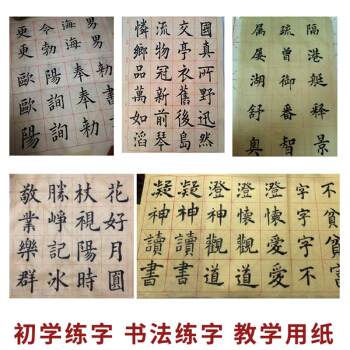 男男勅書
海海奉奉勅
令勿陽詢詢
更更歐歐陽
國真所野迅然
交亭衣舊後島
流物冠新前琴
憐鄉品萬如滔
隔港艇释景
疏曾御番智
属屡湖舒奥
花好月圓
杖視陽時
勝崢記冰
敬業樂群
不貧
字字不不
澄懷愛
澄懷觀道
凝神讀書
凝神讀書
初学练字 书法练字 教学用纸